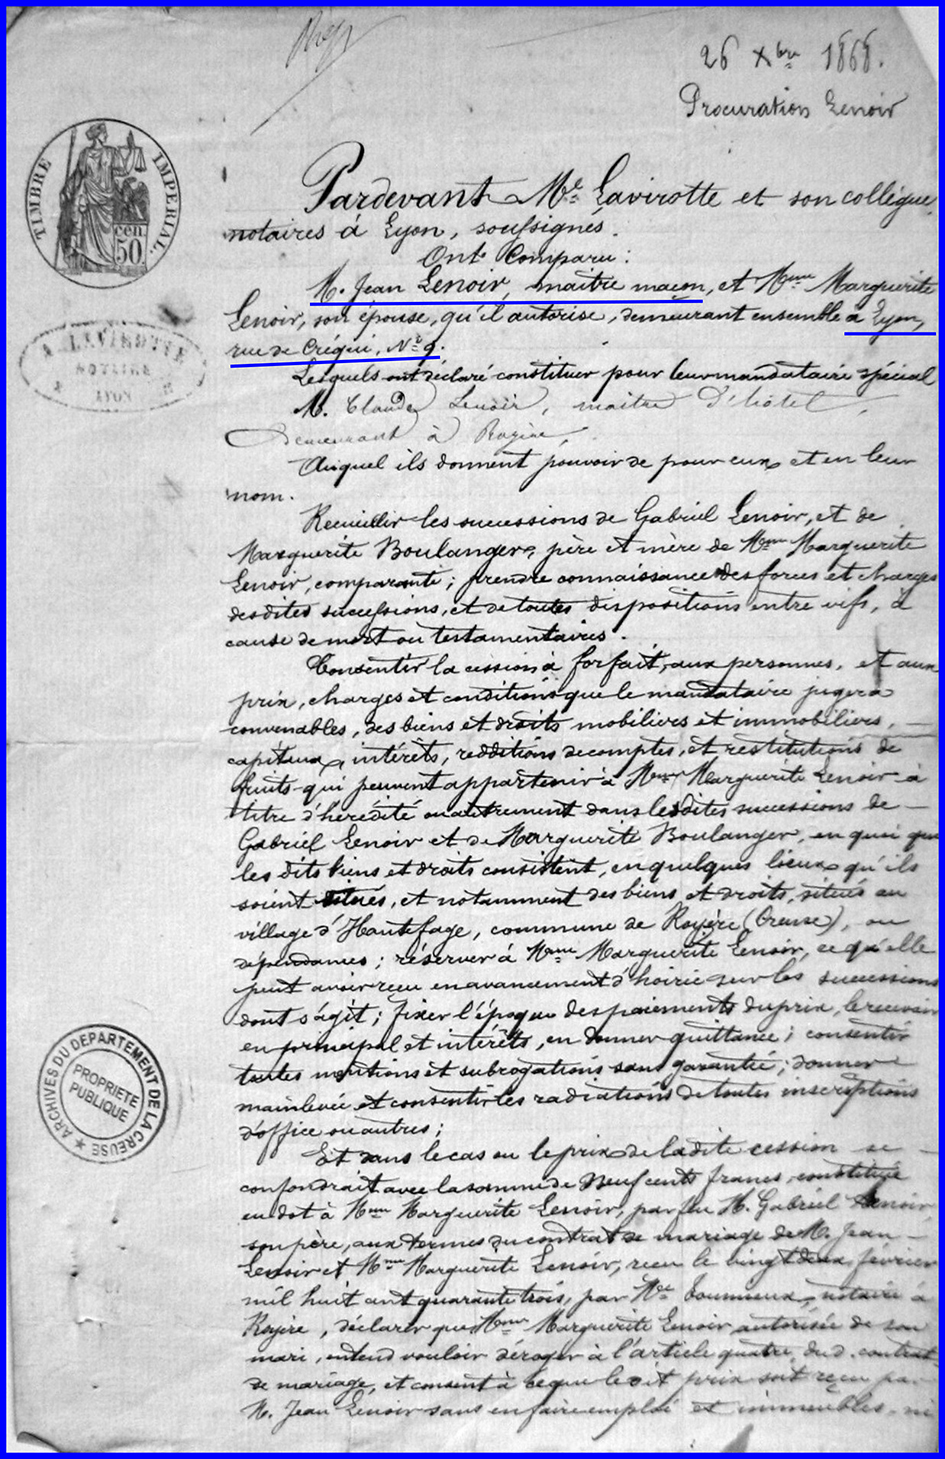 26 Xbre 1868.
Procuration Lenoir
TIMBRE IMPERIAL.
cen. 50.
Pardevant Me Lavirotte et son collègue,
notaires à Lyon, soussignés.
Ont Comparu :
M. Jean Lenoir, maître maçon, et Mme Marguerite
Lenoir, son épouse, qu'il autorise, demeurant ensemble à Lyon,
rue de Créqui, No 9.
A. LAVIROTTE
NOTAIRE
LYON
Lesquels ont déclaré constituer pour leur mandataire spécial
M. Claude Lenoir, maître d'hôtel,
demeurant à Royère,
Auquel ils donnent pouvoir de pour eux et en leur
nom.
Recueillir les successions de Gabriel Lenoir, et de
Marguerite Boulanger, père et mère de Mme Marguerite
Lenoir, comparante ; prendre connaissance des forces et charges
desdites successions, et de toutes dispositions entre vifs, à
cause de mort ou testamentaires.
Consentir la cession à forfait, aux personnes, et aux
prix, charges et conditions que le mandataire jugera
convenables, des biens et droits mobiliers et immobiliers,
capitaux, intérêts, redditions de comptes, et restitutions de
fruits qui peuvent appartenir à Mme Marguerite Lenoir à
titre d'hérédité ou autrement dans lesdites successions de
Gabriel Lenoir et de Marguerite Boulanger, en quoi que
les dits biens et droits consistent, en quelques lieux qu'ils
soient situés, et notamment des biens et droits, situés au
village d'Hautefage, commune de Royère (Creuse), ou
dépendances ; réserver à Mme Marguerite Lenoir, ce qu'elle
peut avoir reçu en avancement d'hoirie sur les successions
dont s'agit ; fixer l'époque des paiements du prix, le recevoir
en principal et intérêts, en donner quittance ; consentir
toutes mentions et subrogations sans garantie ; donner
mainlevée et consentir les radiations de toutes inscriptions
d'office ou autres ;
ARCHIVES DU DEPARTEMENT DE LA CREUSE
PROPRIETE
PUBLIQUE
Et dans le cas ou le prix de ladite cession se
confondrait avec la somme de Neuf cents francs constituée
en dot à Mme Marguerite Lenoir, par feu M. Gabriel Lenoir
son père, aux termes du contrat de mariage de M. Jean
Lenoir et Mme Marguerite Lenoir, reçu le vingt deux février
mil huit cent quarante trois, par Me notaire à
Royère, déclarer que Mme Marguerite Lenoir autorisée de son
mari, entend vouloir déroger à l'article quatre dud. contrat
de mariage, et consent à ce que le dit prix soit reçu par
M. Jean Lenoir sans en faire emploi et immeubles, ni